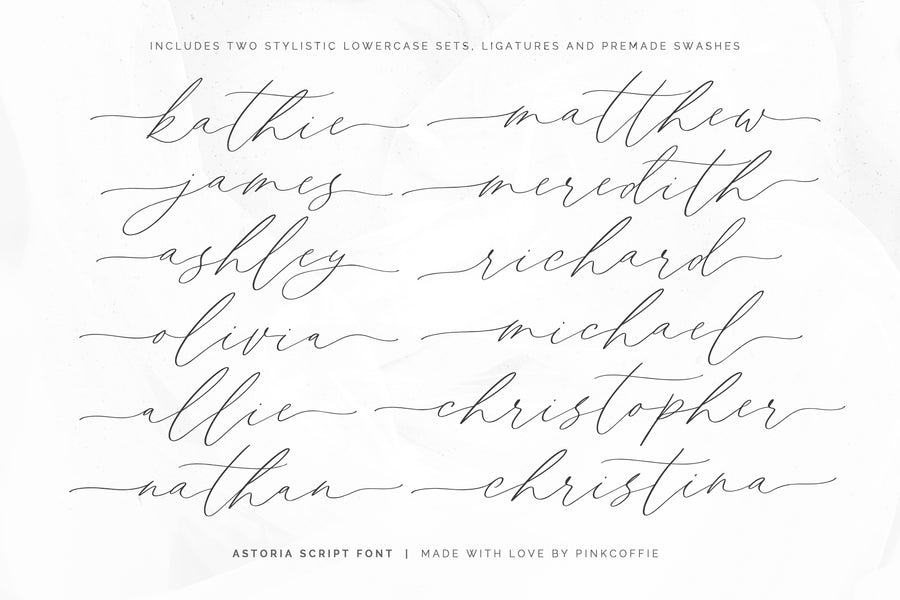 INCLUDES TWO STYLISTIC LOWERCASE SETS, LIGATURES AND PREMADE SWASHES
kathie matthew
james meredith
ashley richard
olivia michael
allie christopher
nathan christina
ASTORIA SCRIPT FONT | MADE WITH LOVE BY PINKCOFFIE